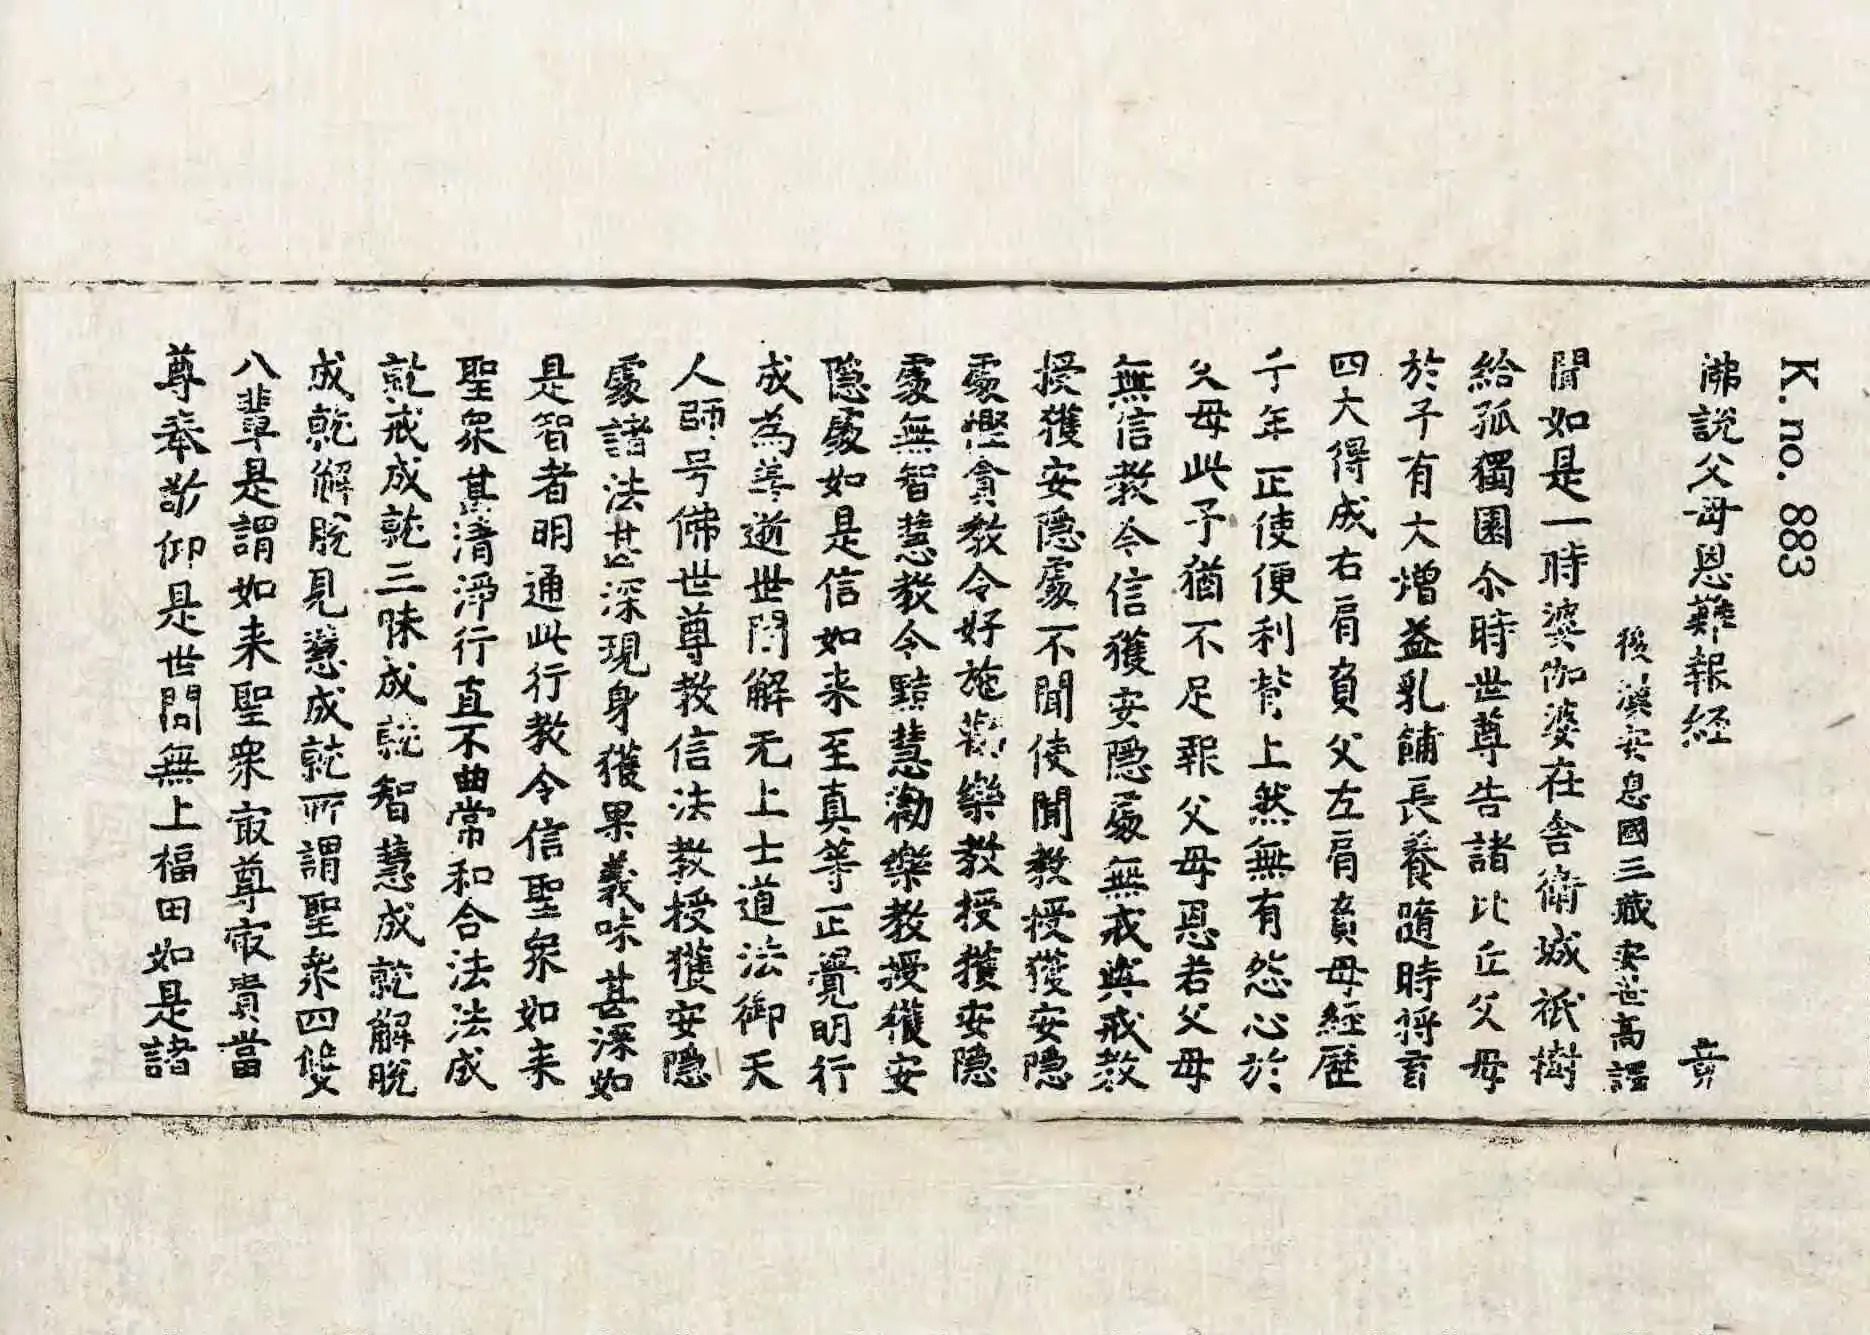 K. no. 883
佛說父母恩難報経 竟
後漢安息國三藏安世高譯
聞如是一時婆伽婆在舍衛城祇樹
給孤獨園尒時世尊告諸比丘父母
於子有大增益乳餔長養隨時將育
四大得成右肩負父左肩負母經歷
千年正使便利背上然無有怨心於
父母此子猶不足報父母恩若父母
無信教令信獲安隱處無戒與戒教
授獲安隱處不聞使聞教授獲安隱
處慳貪教令好施勸樂教授獲安隱
處無智慧教令黠慧勸樂教授獲安
隱處如是信如来至真等正覺明行
成為善逝世間解无上士道法御天
人師号佛世尊教信法教授獲安隱
處諸法甚深現身獲果義味甚深如
是智者明通此行教令信聖衆如来
聖衆甚清淨行直不曲常和合法法成
就戒成就三昧成就智慧成就解脫
成就解脫見慧成就所謂聖衆四雙
八輩是謂如来聖衆㝡尊㝡貴當
尊奉敬仰是世間無上福田如是諸